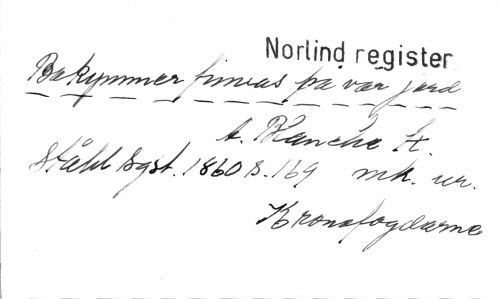 Norlind register
Bekymmer finnas på vår jord
t. Blanche A.
Ståhl Bgst. 1860 S. 169 mk. ur.
Kronofogdarne